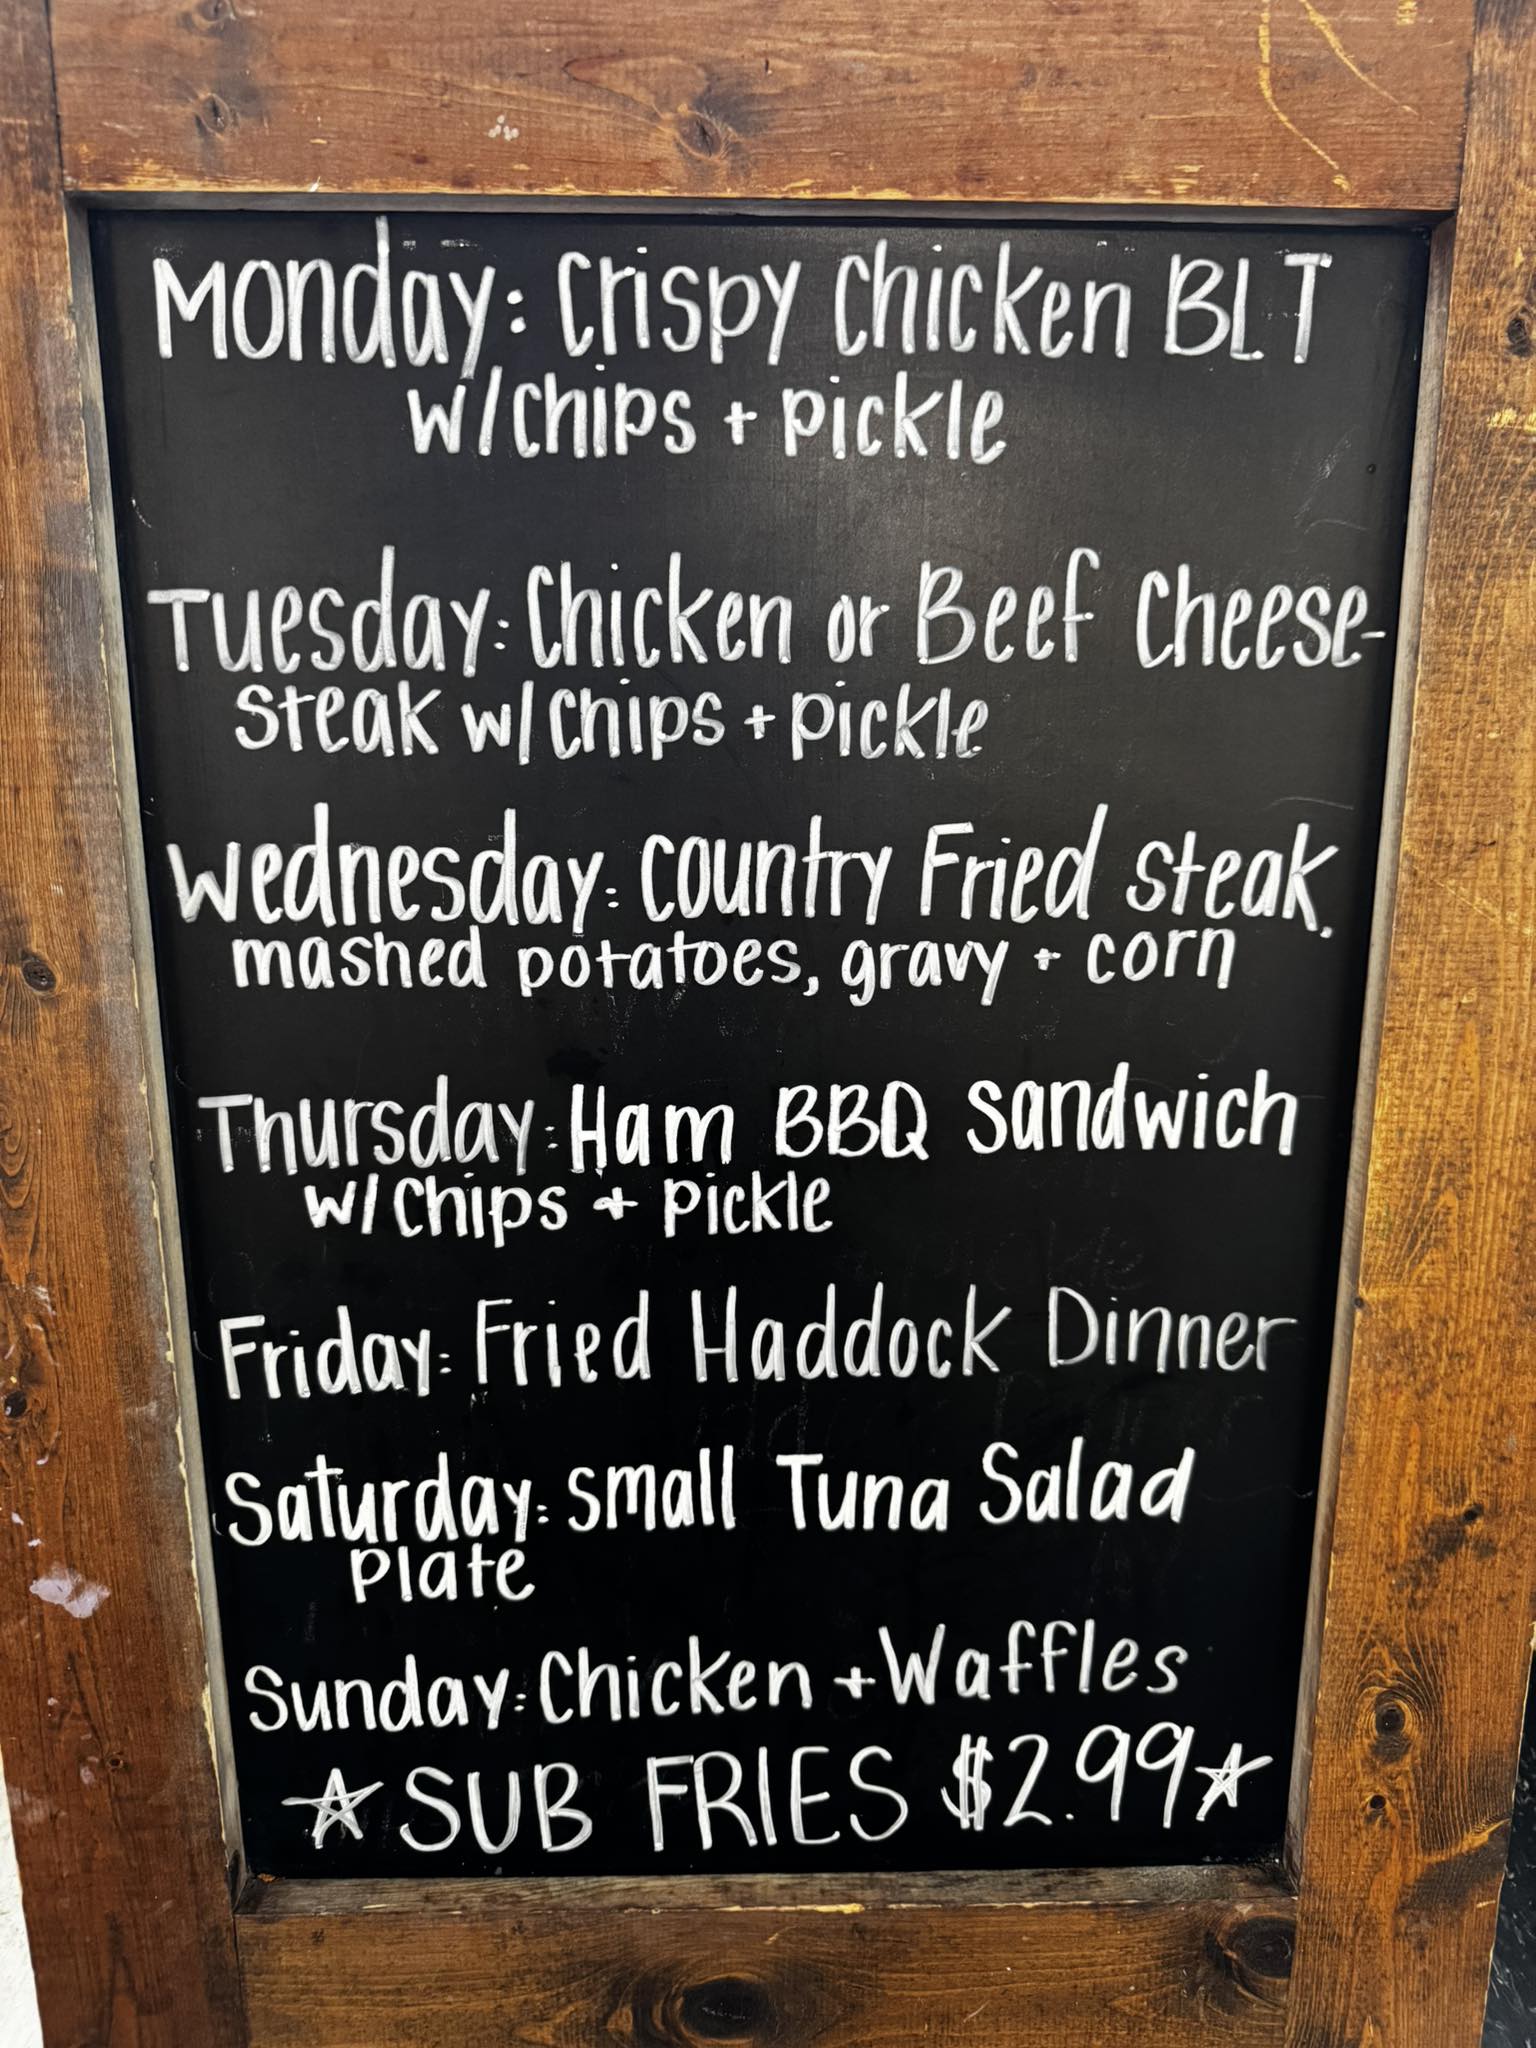 Monday: Crispy Chicken BLT
w/chips + pickle
Tuesday: Chicken or Beef Cheese-
steak w/chips + pickle
Wednesday: Country Fried Steak,
mashed potatoes, gravy + corn
Thursday: Ham BBQ Sandwich
w/chips + pickle
Friday: Fried Haddock Dinner
Saturday: small Tuna Salad
plate
Sunday: Chicken + Waffles
☆ SUB FRIES $2.99 ☆